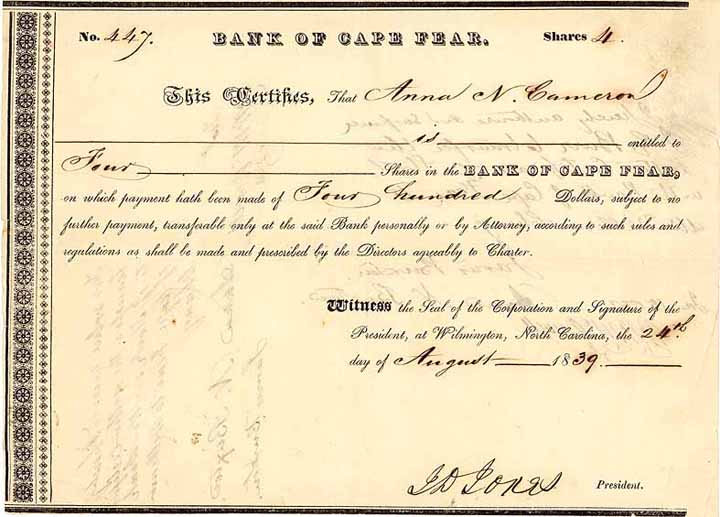 No. 447. BANK OF CAPE FEAR. Shares 4.
This Certifies, That Anna N. Cameron
is entitled to
Four Shares in the BANK OF CAPE FEAR,
on which payment hath been made of Four hundred Dollars, subject to no
further payment, transferable only at the said Bank personally or by Attorney, according to such rules and
regulations as shall be made and prescribed by the Directors agreeably to Charter.
Witness the Seal of the Corporation and Signature of the
President, at Wilmington, North Carolina, the 24th.
day of August 1839.
J D Jones President.